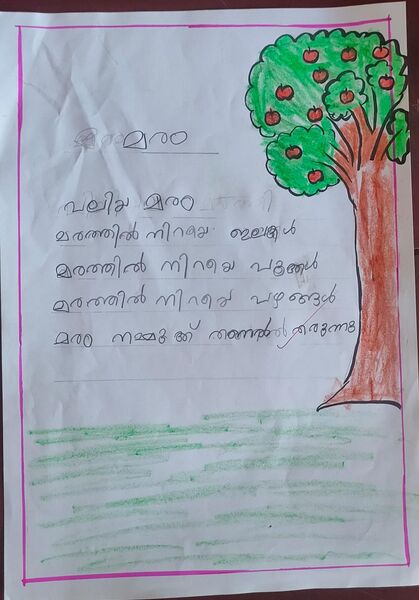 മരം
വലിയ മരം
മരത്തിൽ നിറയെ ഇലകൾ
മരത്തിൽ നിറയെ പൂക്കൾ
മരത്തിൽ നിറയെ പഴങ്ങൾ
മരം നമ്മുക്ക് തണൽ തരുന്നു